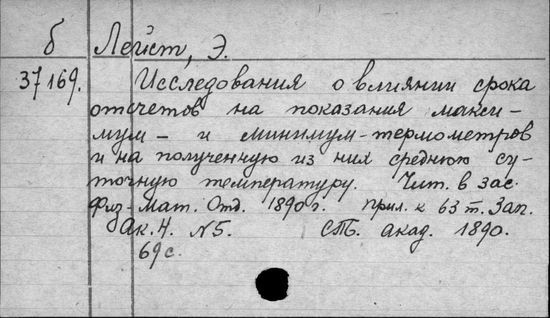 б Лейст, Э.
37169. Исследования о влиянии срока
отсчетов на показания макси-
мум- и минимум-термометров
и на полученную из них среднюю су-
точную температуру. Чит. в зас.
Физ-мат. Отд. 1890 г. прил. к 63 т. Зап.
Ак. Н. №5. СПб. акад. 1890.
69 с.